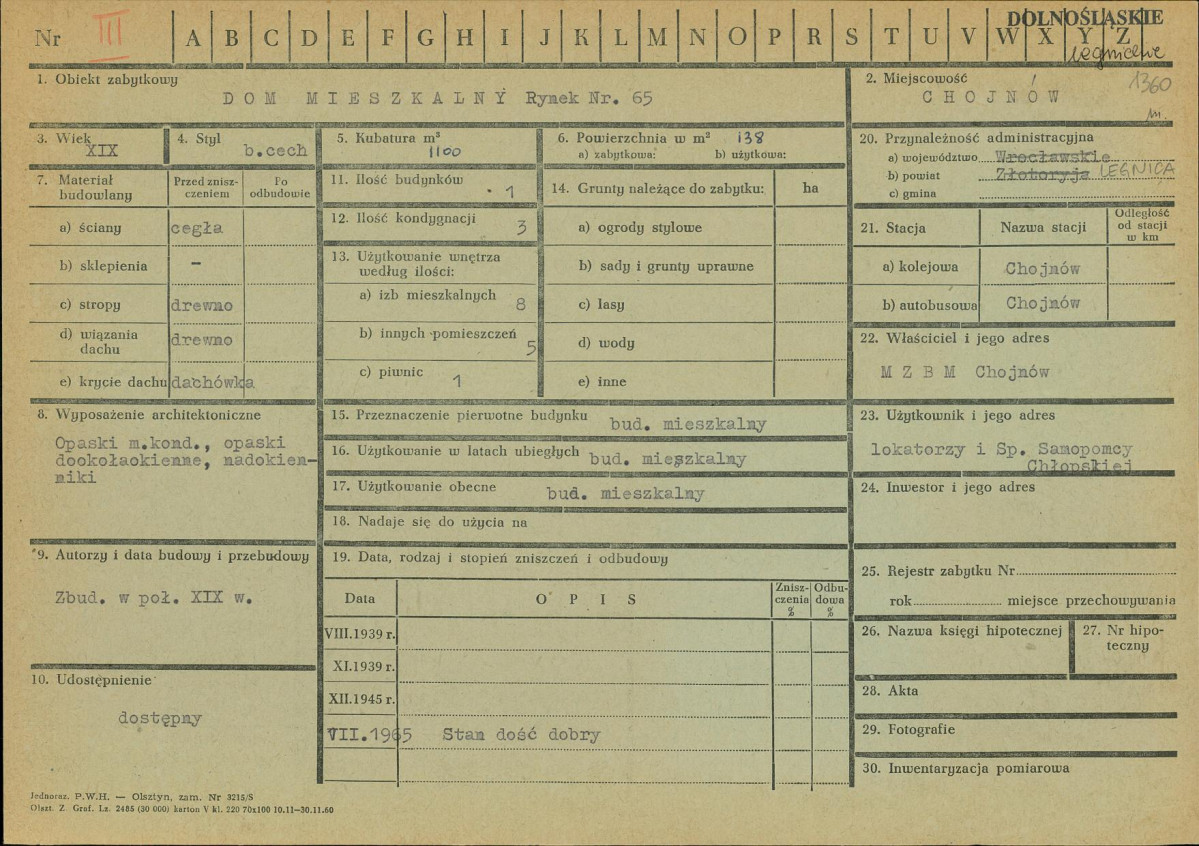 DOLNOŚLĄSKIE
Nr III A B C D E F G H I J K L M N O P R S T U V W X Y Z
1360
m.
1. Obiekt zabytkowy
DOM MIESZKALNY Rynek Nr. 65
2. Miejscowość
CHOJNÓW
3. Wiek
XIX
4. Styl
b.cech
5. Kubatura m³
1100
6. Powierzchnia w m² 138
a) zabytkowa: b) użytkowa:
7. Materiał budowlany
Przed zniszczeniem
Po odbudowie
a) ściany cegła
b) sklepienia –
c) stropy drewno
d) wiązania dachu drewno
e) krycie dachu dachówka
8. Wyposażenie architektoniczne
Opaski m.kond., opaski
dookołaokienne, nadokien-
niki
9. Autorzy i data budowy i przebudowy
Zbud. w poł. XIX w.
10. Udostępnienie
dostępny
11. Ilość budynków
1
12. Ilość kondygnacji
3
13. Użytkowanie wnętrza
według ilości:
a) izb mieszkalnych 8
b) innych pomieszczeń 5
c) piwnic 1
14. Grunty należące do zabytku: ha
a) ogrody stylowe
b) sady i grunty uprawne
c) lasy
d) wody
e) inne
15. Przeznaczenie pierwotne budynku bud. mieszkalny
16. Użytkowanie w latach ubiegłych bud. mieszkalny
17. Użytkowanie obecne bud. mieszkalny
18. Nadaje się do użycia na
19. Data, rodzaj i stopień zniszczeń i odbudowy
Data OPIS Zniszczenia % Odbudowa %
VIII.1939 r.
XI.1939 r.
XII.1945 r.
VII.1965 Stan dość dobry
20. Przynależność administracyjna
a) województwo Wrocławskie
b) powiat Złotoryja LEGNICA
c) gmina
21. Stacja Nazwa stacji Odległość od stacji w km
a) kolejowa Chojnów
b) autobusowa Chojnów
22. Właściciel i jego adres
MZBM Chojnów
23. Użytkownik i jego adres
lokatorzy i Sp. Samopomcy
Chłopskiej
24. Inwestor i jego adres
25. Rejestr zabytku Nr
rok miejsce przechowywania
26. Nazwa księgi hipotecznej
27. Nr hipo-
teczny
28. Akta
29. Fotografie
30. Inwentaryzacja pomiarowa
Jednoraz. P.W.H. — Olsztyn, zam. Nr 3215/S
Olszt. Z. Graf. Lz. 2485 (30 000) karton V kl. 220 70x100 10.11—30.11.60